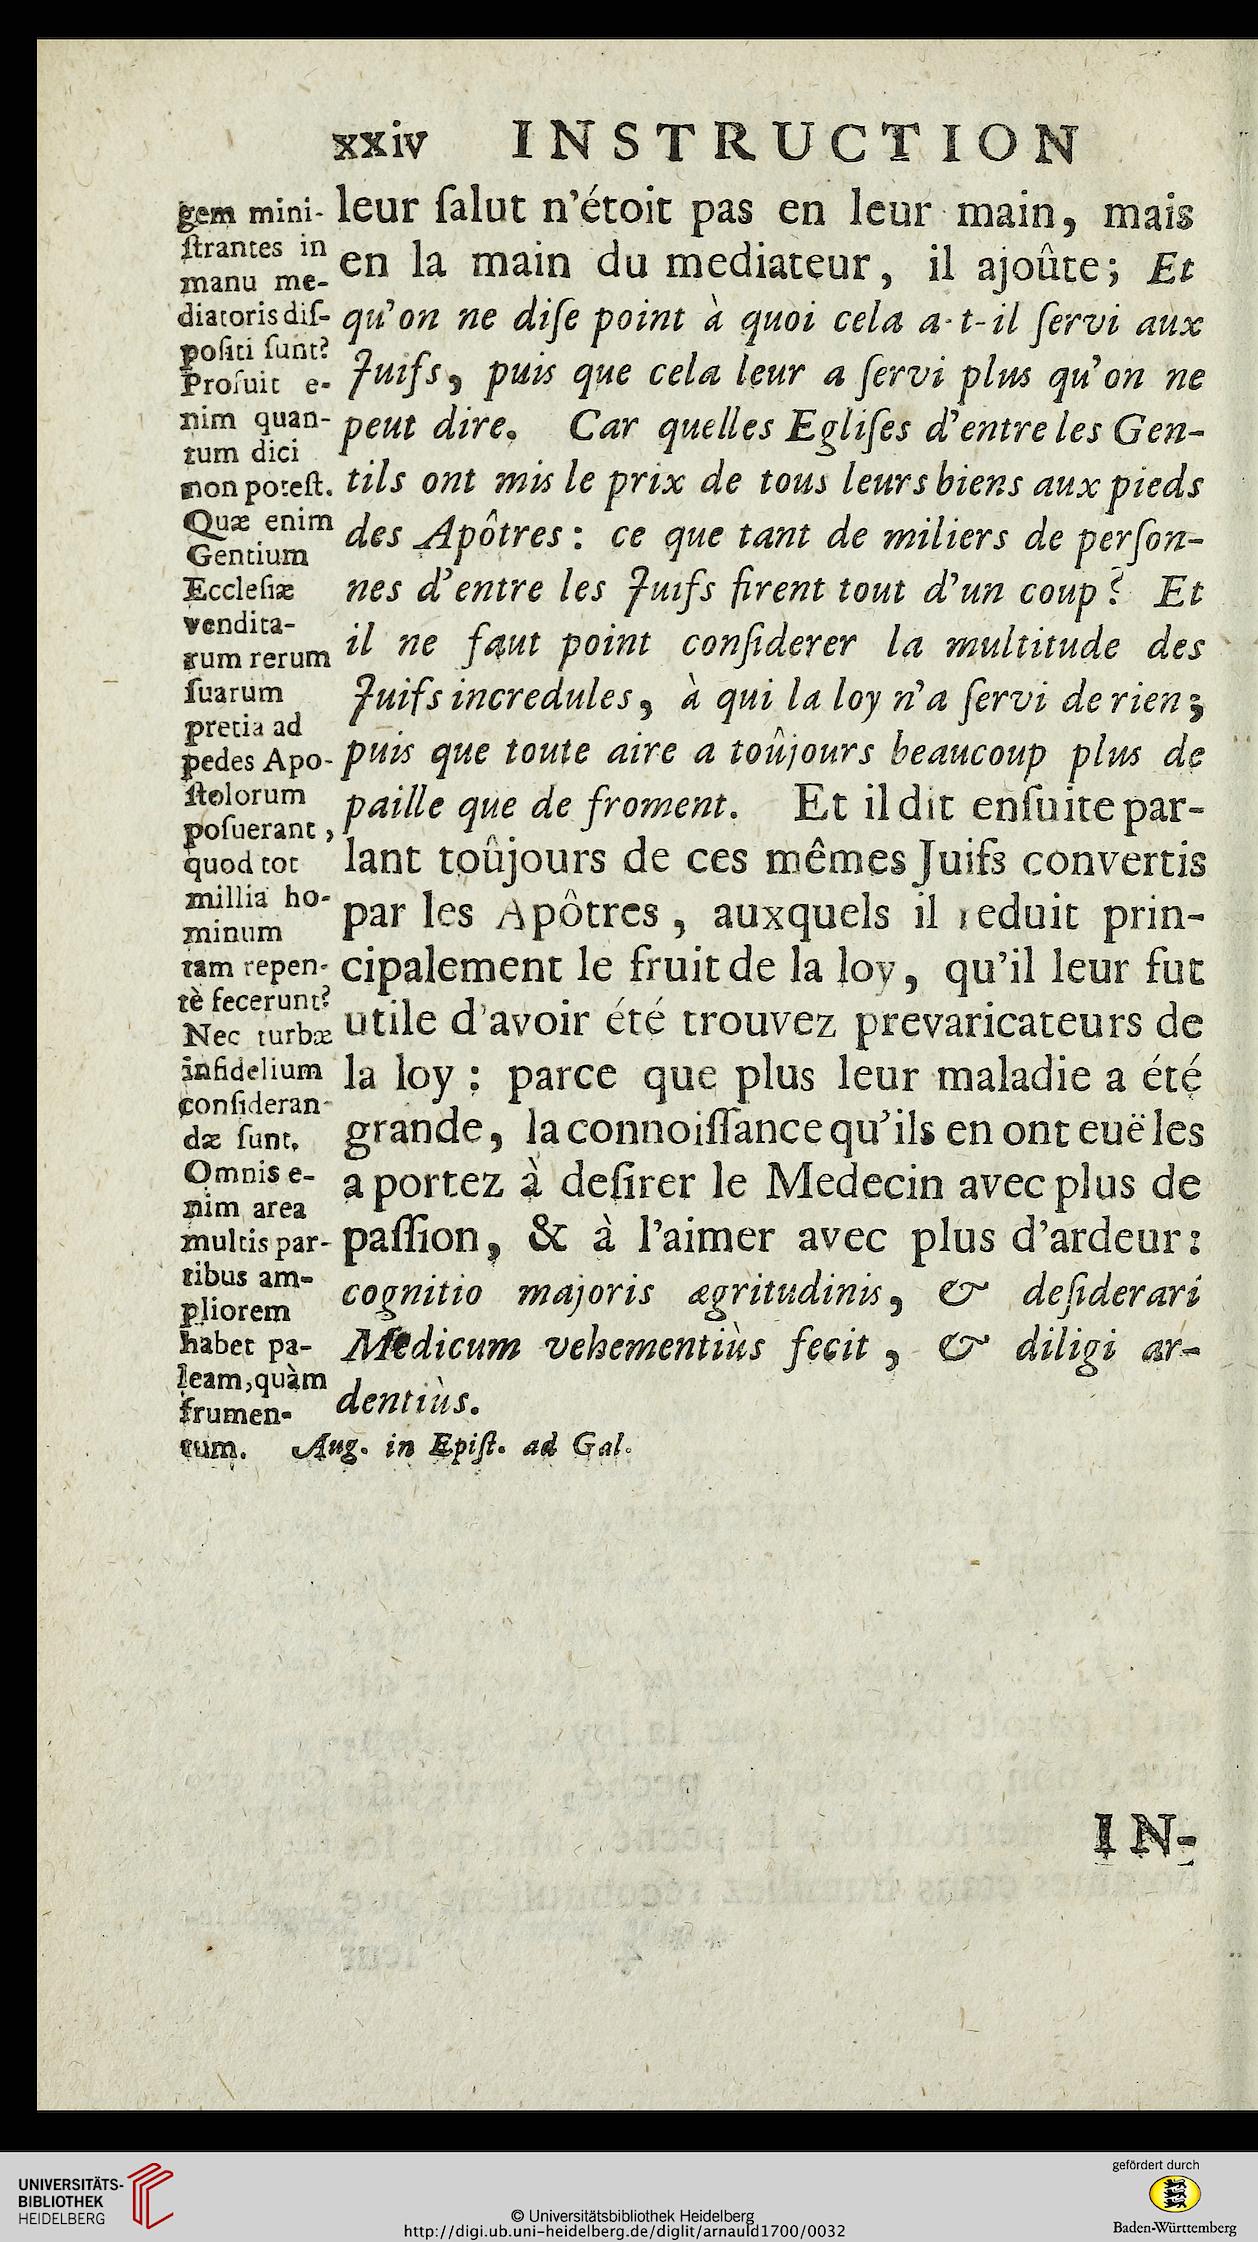 xxiv INSTRUCTION
leur ſalut n'étoit pas en leur main, mais
en la main du mediateur, il ajoûte; Et
qu'on ne diſe point à quoi cela a-t-il ſervi aux
Juifs, puis que cela leur a ſervi plus qu'on ne
peut dire. Car quelles Egliſes d'entre les Gen-
tils ont mis le prix de tous leurs biens aux pieds
des Apôtres: ce que tant de miliers de perſon-
nes d'entre les Juifs firent tout d'un coup? Et
il ne faut point conſiderer la multitude des
Juifs incredules, à qui la loy n'a ſervi de rien;
puis que toute aire a toûjours beaucoup plus de
paille que de froment. Et il dit enſuite par-
lant toûjours de ces mêmes Juifs convertis
par les Apôtres, auxquels il reduit prin-
cipalement le fruit de la loy, qu'il leur fut
utile d'avoir été trouvez prevaricateurs de
la loy: parce que plus leur maladie a été
grande, la connoiſſance qu'ils en ont euë les
a portez à deſirer le Medecin avec plus de
paſſion, & à l'aimer avec plus d'ardeur:
cognitio majoris ægritudinis, & deſiderari
Medicum vehementiùs fecit, & diligi ar-
dentiùs.
gem mini-
ſtrantes in
manu me-
diatoris diſ-
poſiti ſunt?
Profuit e-
nim quan-
tum dici
non poteſt.
Quæ enim
Gentium
Eccleſiæ
vendita-
rum rerum
ſuarum
pretia ad
pedes Apo-
ſtolorum
poſuerant,
quod tot
millia ho-
minum
tam repen-
tè fecerunt?
Nec turbæ
infidelium
conſideran-
dæ ſunt.
Omnis e-
nim area
multis par-
tibus am-
pliorem
habet pa-
leam, quàm
frumen-
tum. Aug. in Epiſt. ad Gal.
IN-
UNIVERSITÄTS-
BIBLIOTHEK
HEIDELBERG
© Universitätsbibliothek Heidelberg
http://digi.ub.uni-heidelberg.de/diglit/arnauld1700/0032
gefördert durch
Baden-Württemberg